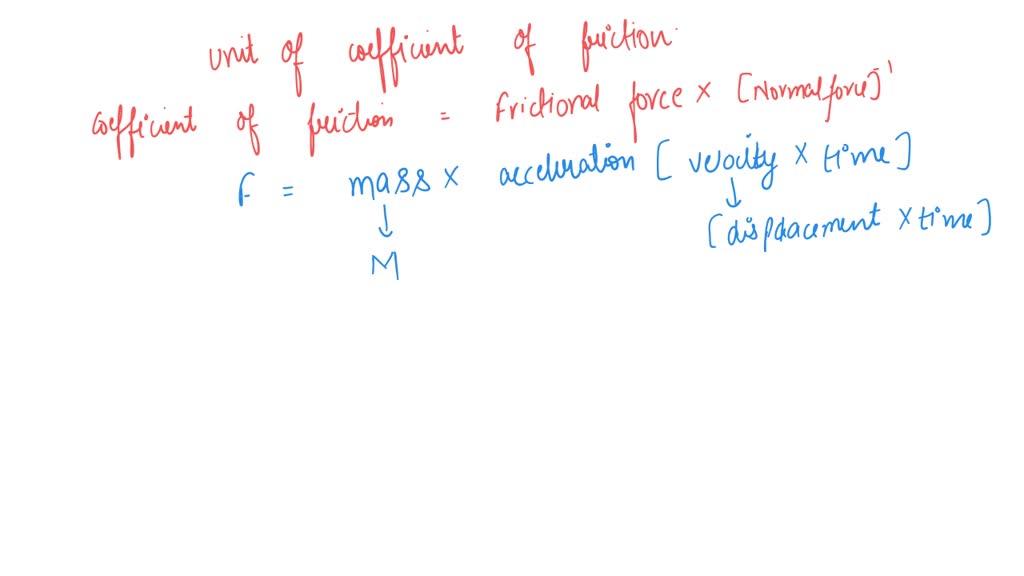 unit of coefficient of friction.
coefficient of friction = frictional force × [Normal force]⁻¹
F = mass × acceleration [velocity × time]
↓ ↓
[displacement × time]
M